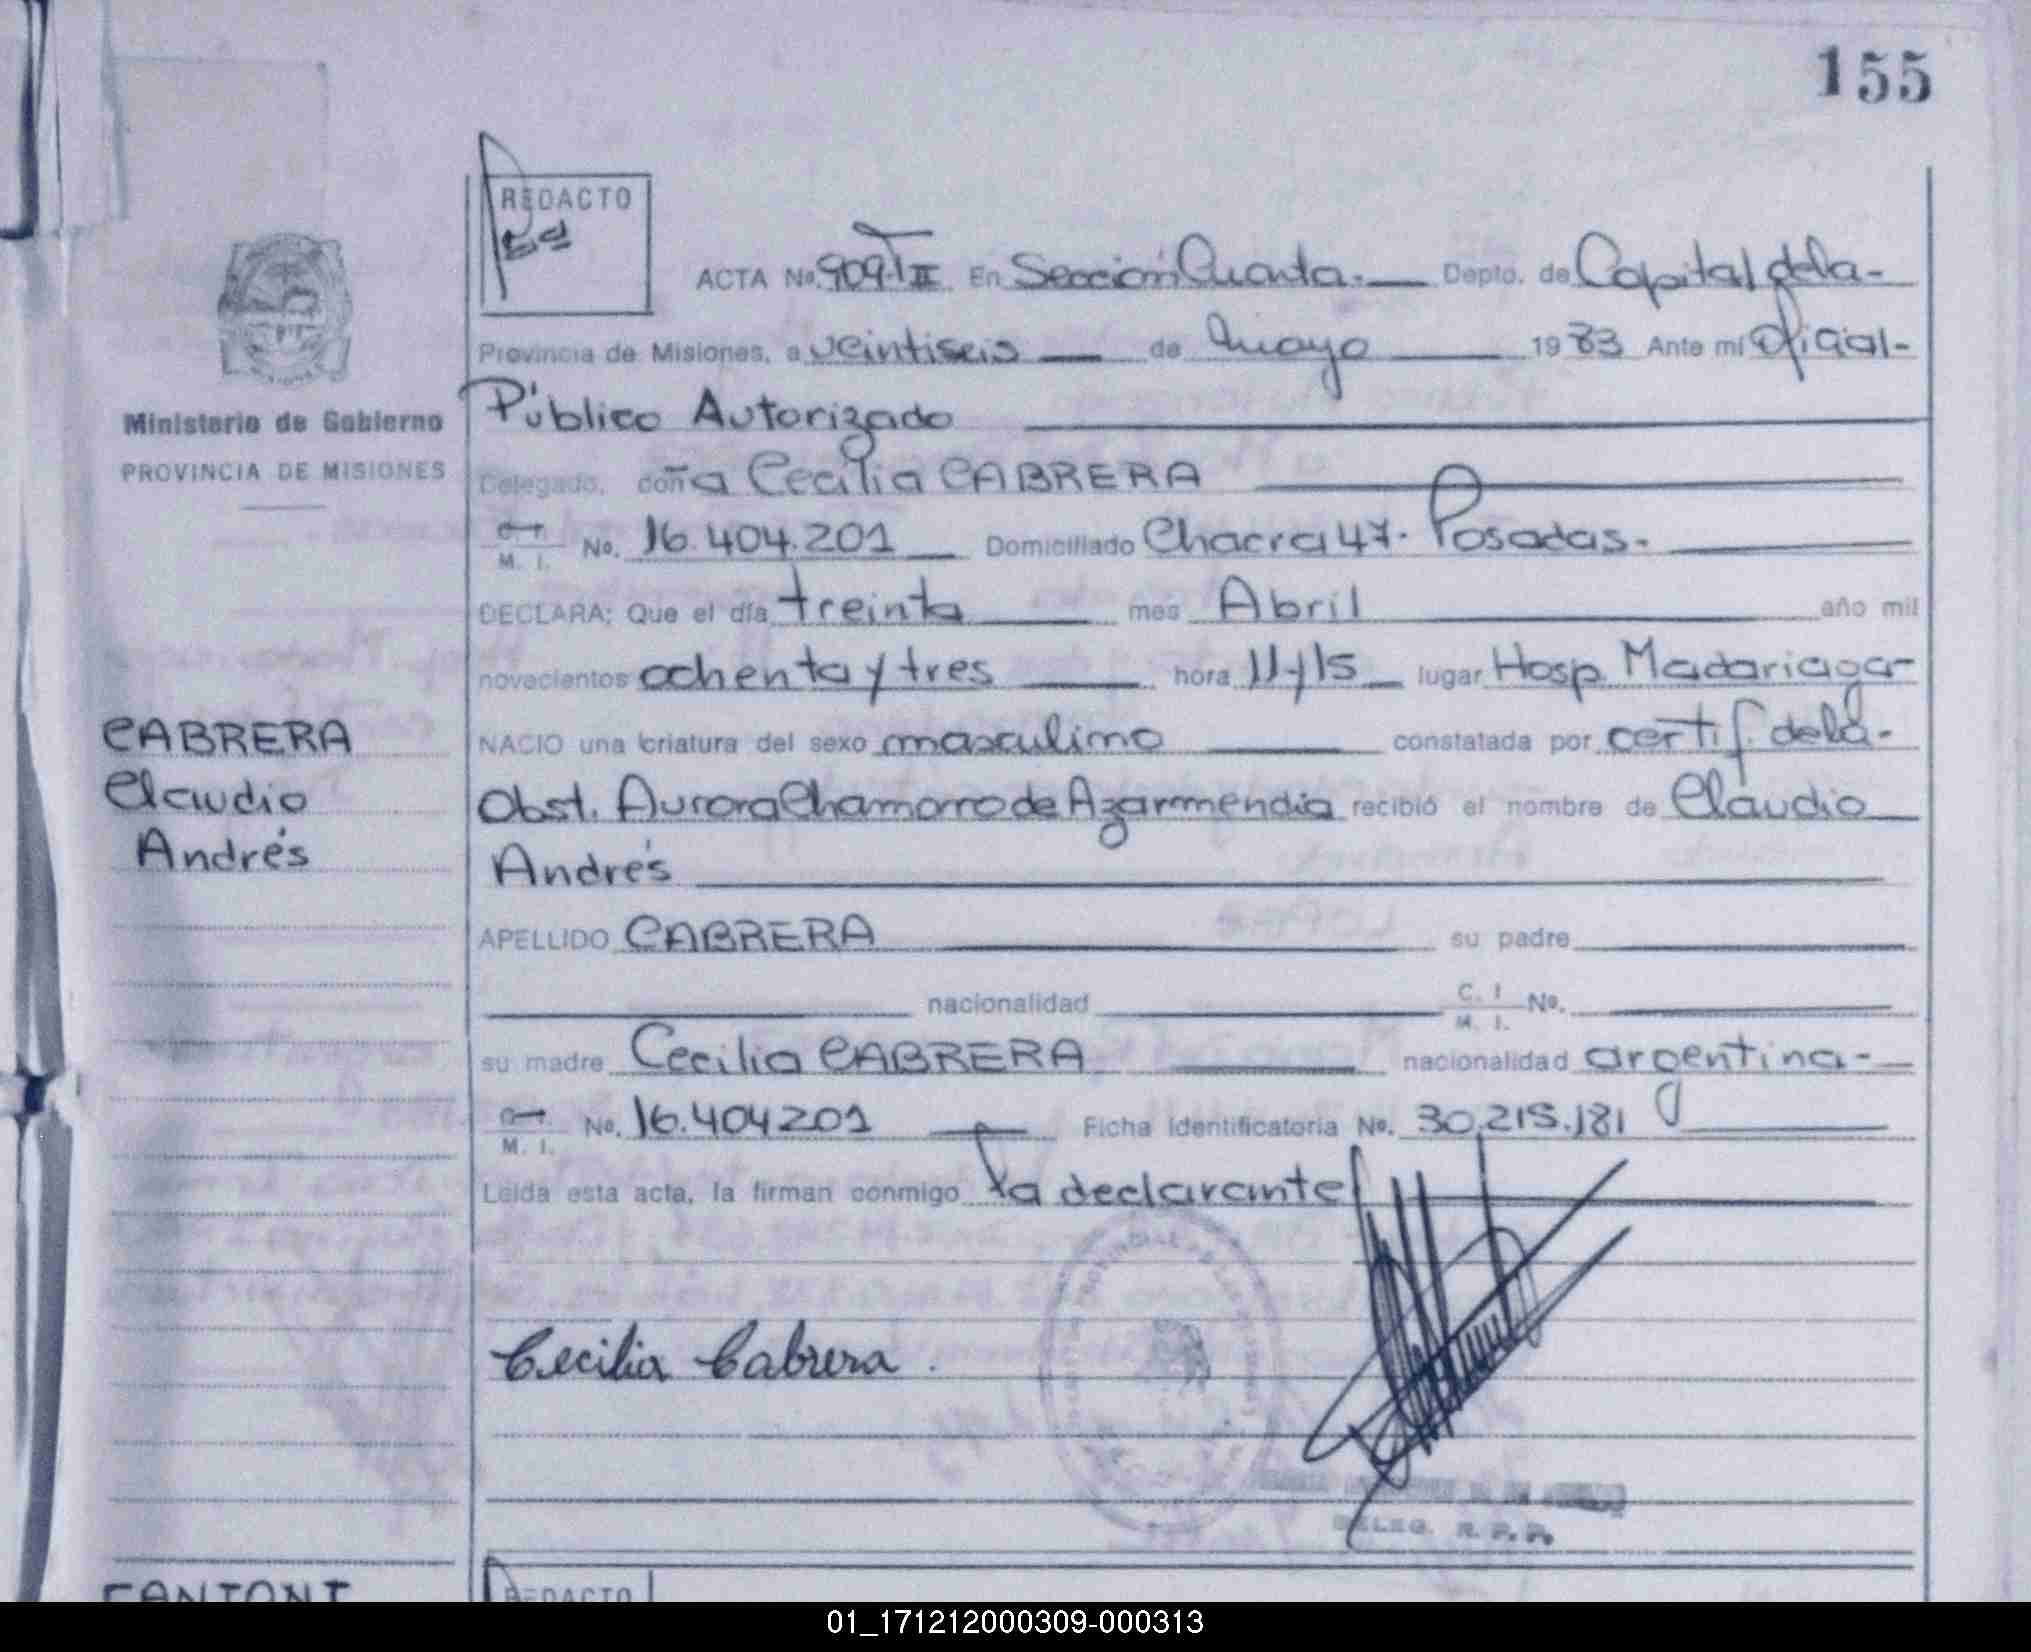 155
REDACTO
ACTA No. 909-T III En Sección Cuarta.- Depto. de Capital de la-
Provincia de Misiones, a veintiseis de mayo 1983 Ante mí Oficial-
Público Autorizado
Ministerio de Gobierno
PROVINCIA DE MISIONES
Delegado, doña Cecilia CABRERA
C. I.
M. I. No. 16.404.201 Domiciliado Chacra 47. Posadas.
DECLARA; Que el día treinta mes Abril año mil
novecientos ochenta y tres hora 11y15 lugar Hosp. Madariaga-
CABRERA
Claudio
Andrés
NACIO una criatura del sexo masculino constatada por certif. de la-
Obst. Aurora Chamorro de Azarmendia recibió el nombre de Claudio
Andrés
APELLIDO CABRERA su padre
nacionalidad C. I.
M. I. No.
su madre Cecilia CABRERA nacionalidad argentina-
C. I.
M. I. No. 16.404201 Ficha Identificatoria No. 30.215.181
Leída esta acta, la firman conmigo la declarante
Cecilia Cabrera.
DELEG. R. P. P.
CANTONI
REDACTO
01_171212000309-000313